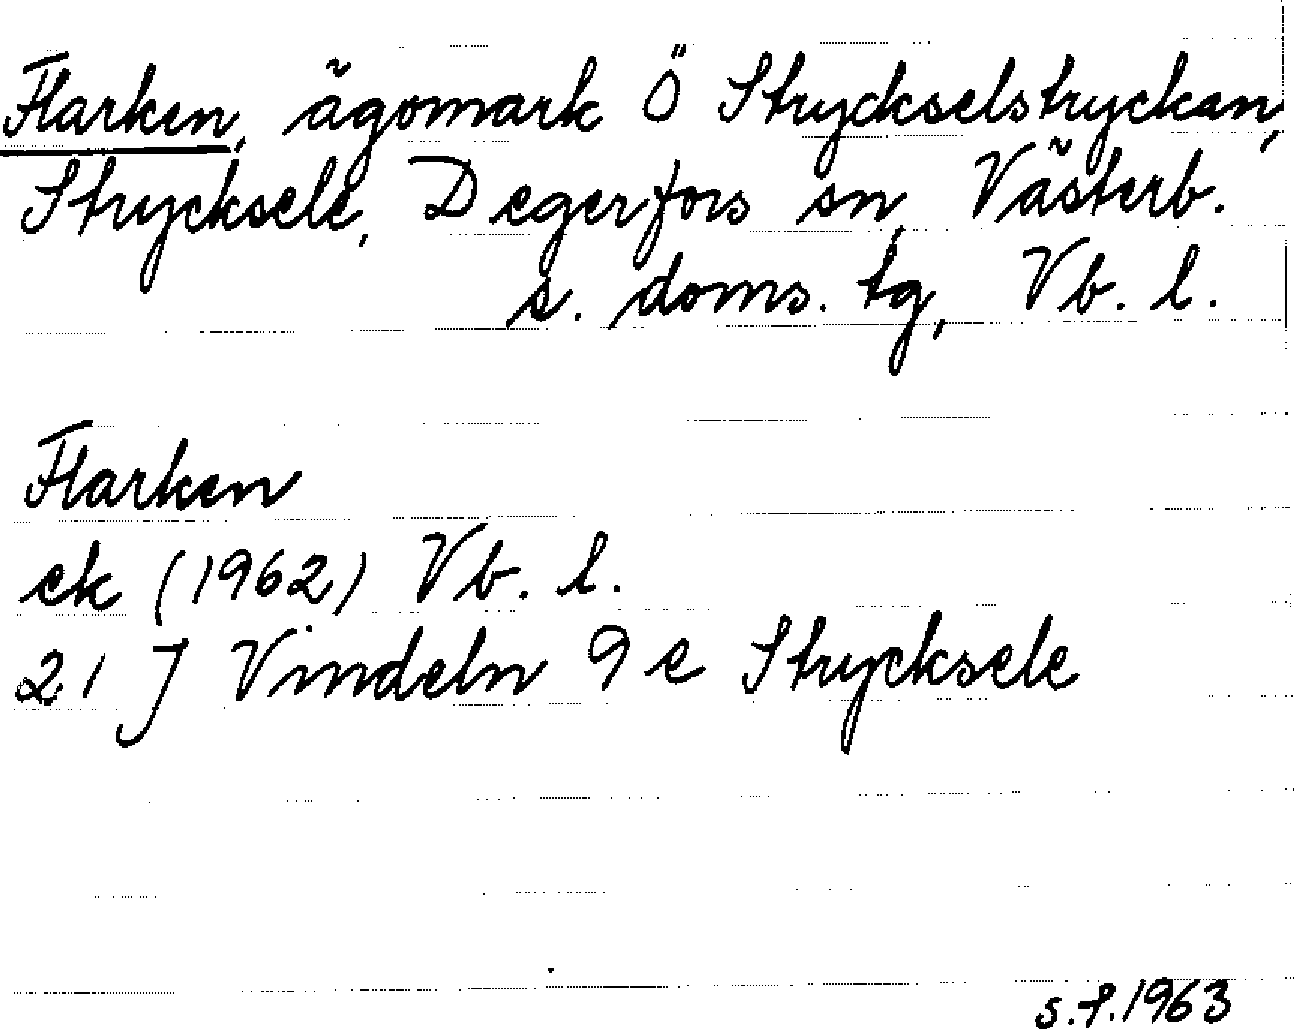 Flarken, ägomark Ö Styckselstryckan,
Strycksele, Degerfors sn, Västerb.
s. doms. tg, Vb. l.
Flarken
ek (1962) Vb. l.
21 J Vindeln 9 e Strycksele
s.f.1963